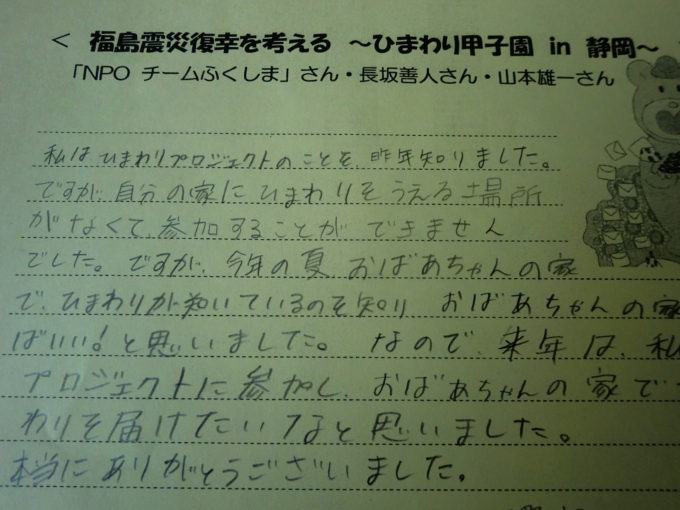 ＜ 福島震災復幸を考える ～ひまわり甲子園 in 静岡～
「NPO チームふくしま」さん・長坂善人さん・山本雄一さん
私はひまわりプロジェクトのことを、昨年知りました。
ですが、自分の家にひまわりをうえる場所
がなくて、参加することができません
でした。ですが、今年の夏、おばあちゃんの家
で、ひまわりが咲いているのを知り おばあちゃんの家
ばいい！と思いました。 なので、来年は、私
プロジェクトに参加し、おばあちゃんの家で
わりを届けたいなと思いました。
本当にありがとうございました。